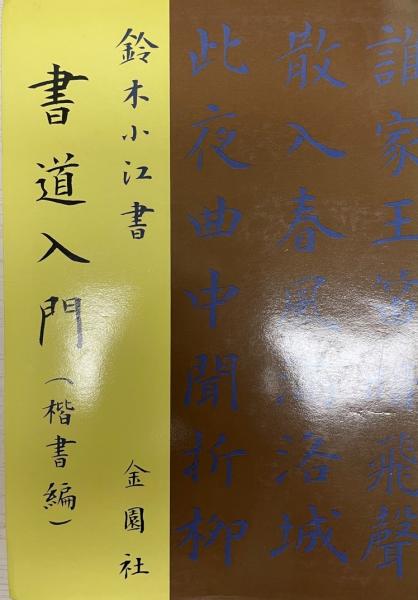 誰家玉笛暗飛聲
散入春風洛城
此夜曲中聞折柳
鈴木小江書
金園社
書道入門(楷書編)